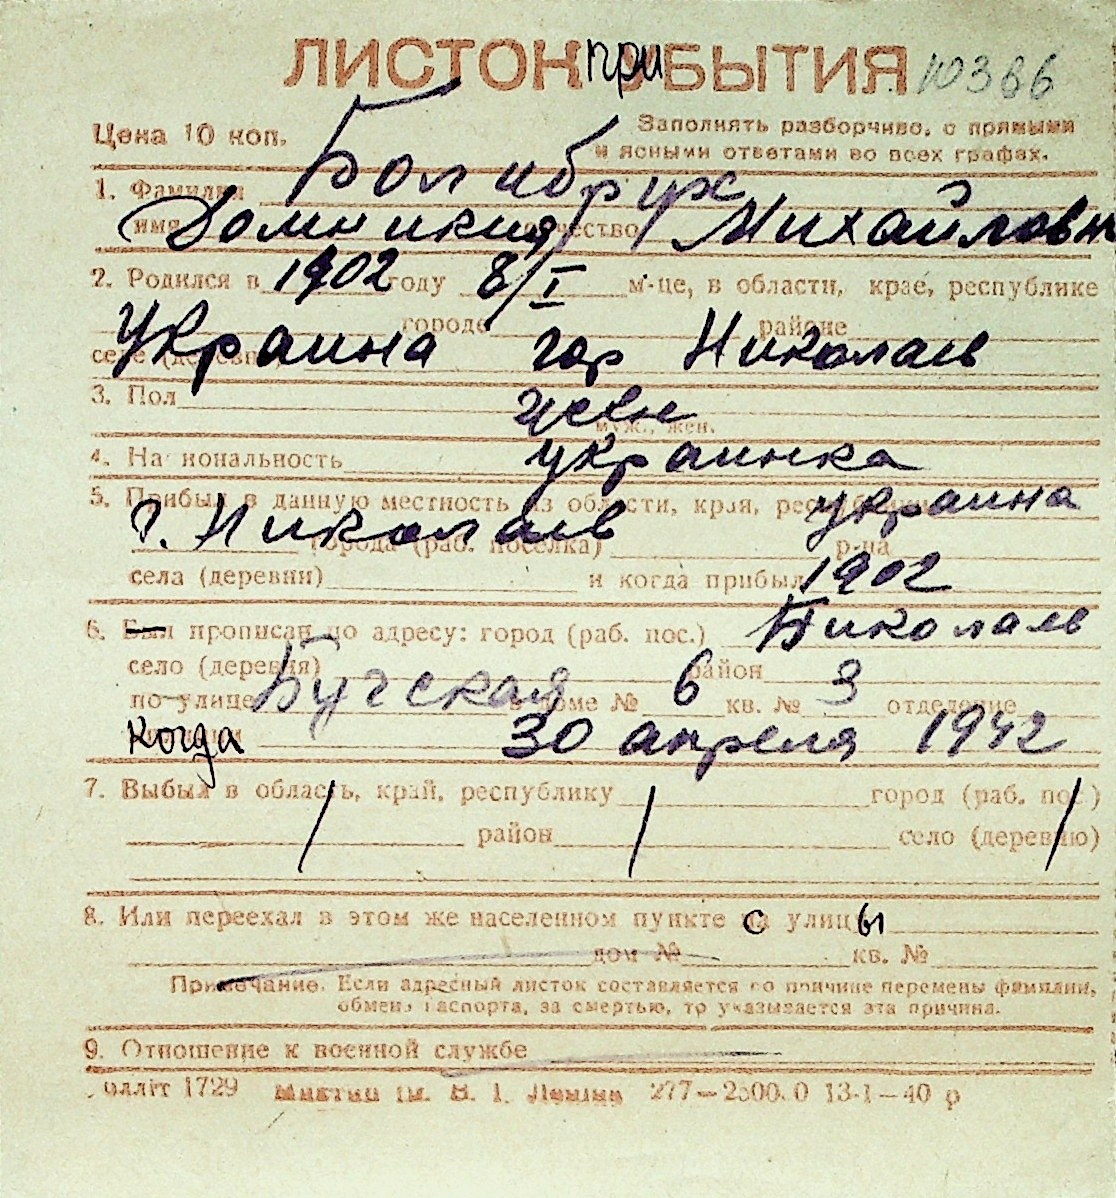 ЛИСТОК прибытия 10366
Цена 10 коп.
Заполнять разборчиво, с прямыми
и ясными ответами во всех графах.
1. Фамилия Болибрух
имя Домникия отчество Михайловн
2. Родился в 1902 году 8/I м-це, в области, крае, республике
городе районе
селе (деревне) Украина гор Николаев
3. Пол жен
муж., жен.
4. Национальность украинка
5. Прибыл в данную местность из области, края, республики украина
г. Николаев города (раб. поселка) р-на
села (деревни) и когда прибыл 1902
6. прописан по адресу: город (раб. пос.) Николаев
село (деревня) район
по улице Бугская в доме № 6 кв. № 3 отделение
когда 30 апреля 1942
7. Выбыл в область, край, республику город (раб. пос)
район село (деревню)
8. Или переехал в этом же населенном пункте с улицы
дом № кв. №
Примечание. Если адресный листок составляется по причине перемены фамилии,
обмена паспорта, за смертью, то указывается эта причина.
9. Отношение к военной службе
1729 В. І. Леніна 277—2500.0 13-1—40 р